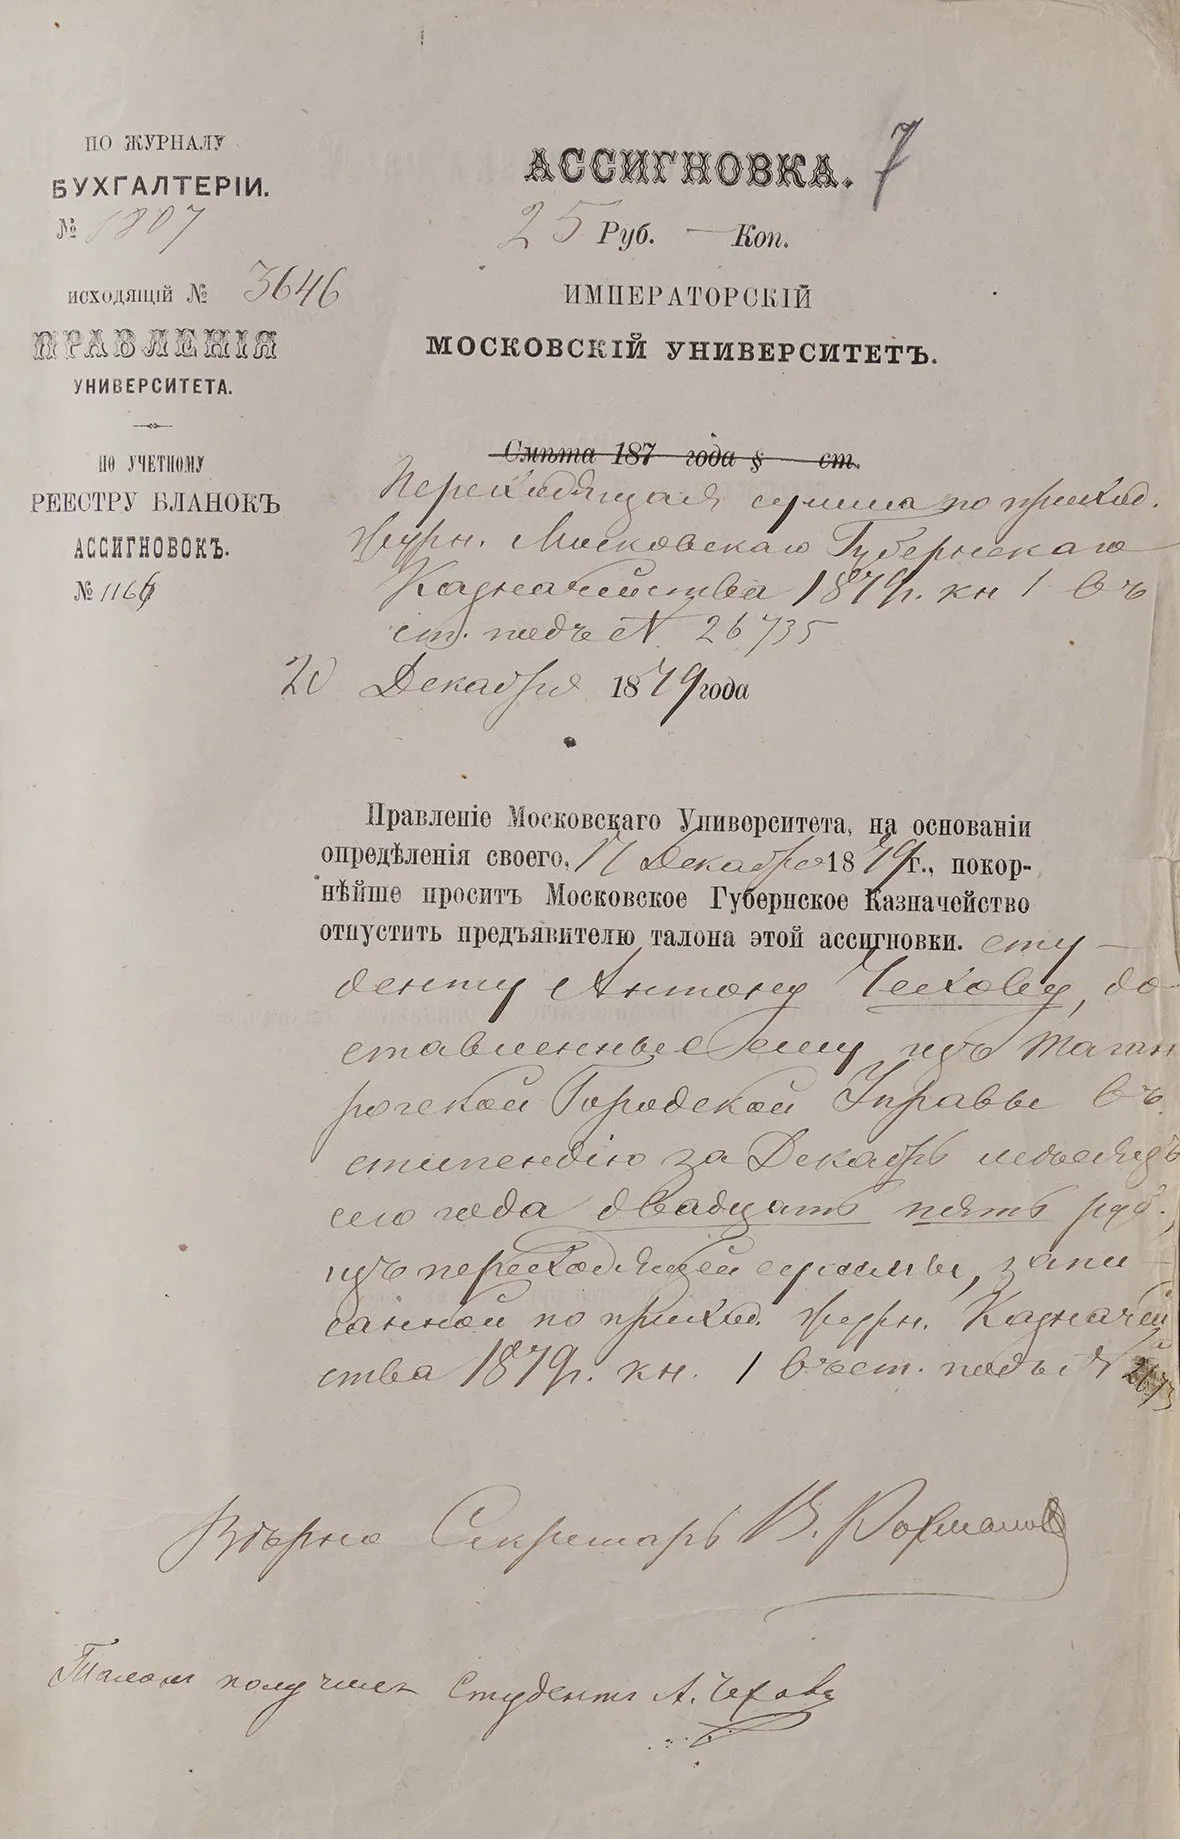 ПО ЖУРНАЛУ
БУХГАЛТЕРІИ.
№ 1807
ИСХОДЯЩІЙ № 3646
ПРАВЛЕНІЯ
УНИВЕРСИТЕТА.
ПО УЧЕТНОМУ
РЕЕСТРУ БЛАНОКЪ
АССИГНОВОКЪ.
№ 1166
АССИГНОВКА. 7
25 Руб. — Коп.
ИМПЕРАТОРСКІЙ
МОСКОВСКІЙ УНИВЕРСИТЕТЪ.
Смѣта 187 года § ст.
Переходящая сумма по приход.
журн. Московскаго Губернскаго
Казначейства 1879 г. кн 1 въ
ст. подъ № 26735
20 Декабря 1879 года
Правленіе Московскаго Университета, на основаніи
опредѣленія своего, 17 Декабря 1879 г., покор-
нѣйше проситъ Московское Губернское Казначейство
отпустить предъявителю талона этой ассигновки. сту-
денту Антону Чехову, до-
ставленные ему изъ Таган
рогской Городской Управы въ
стипендію за Декабрь мѣсяцъ
сего года двадцать пять руб.,
изъ переходящей суммы, запи-
санной по приход. журн. Казначей
ства 1879 г. кн. 1 въ ст. подъ № 2673
Вѣрно Секретарь В.
Талонъ получилъ студентъ А. Чеховъ